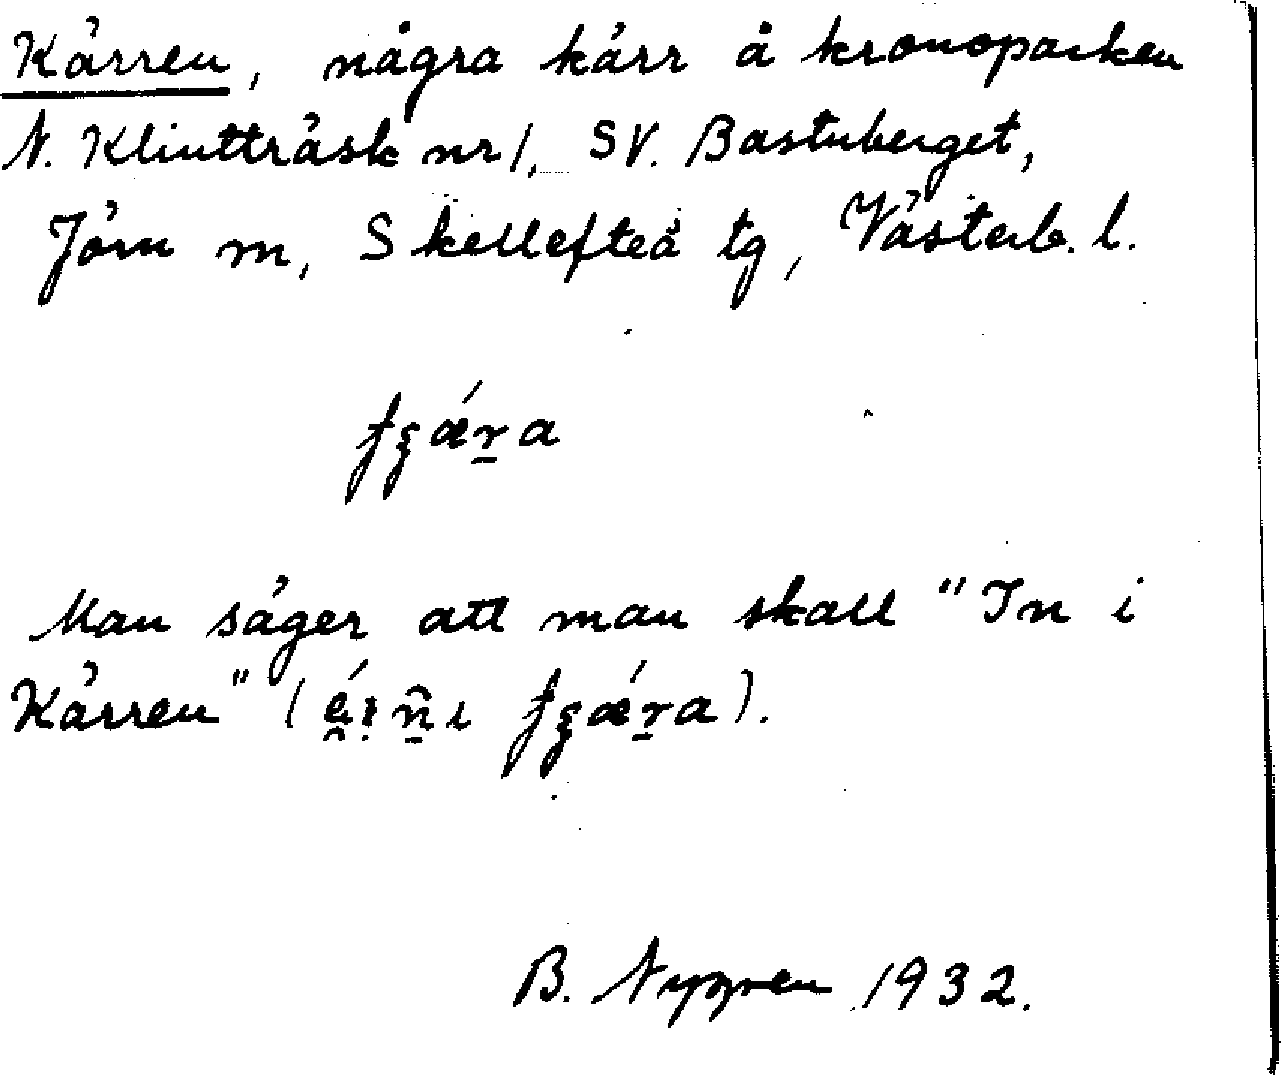 Kärren, några kärr å kronoparken
N. Klintträsk nr 1, SV. Bastuberget,
Jörn sn, Skellefteå tg, Västerb. l.
Man säger att man skall "In i
Kärren"
B. Nygren 1932.